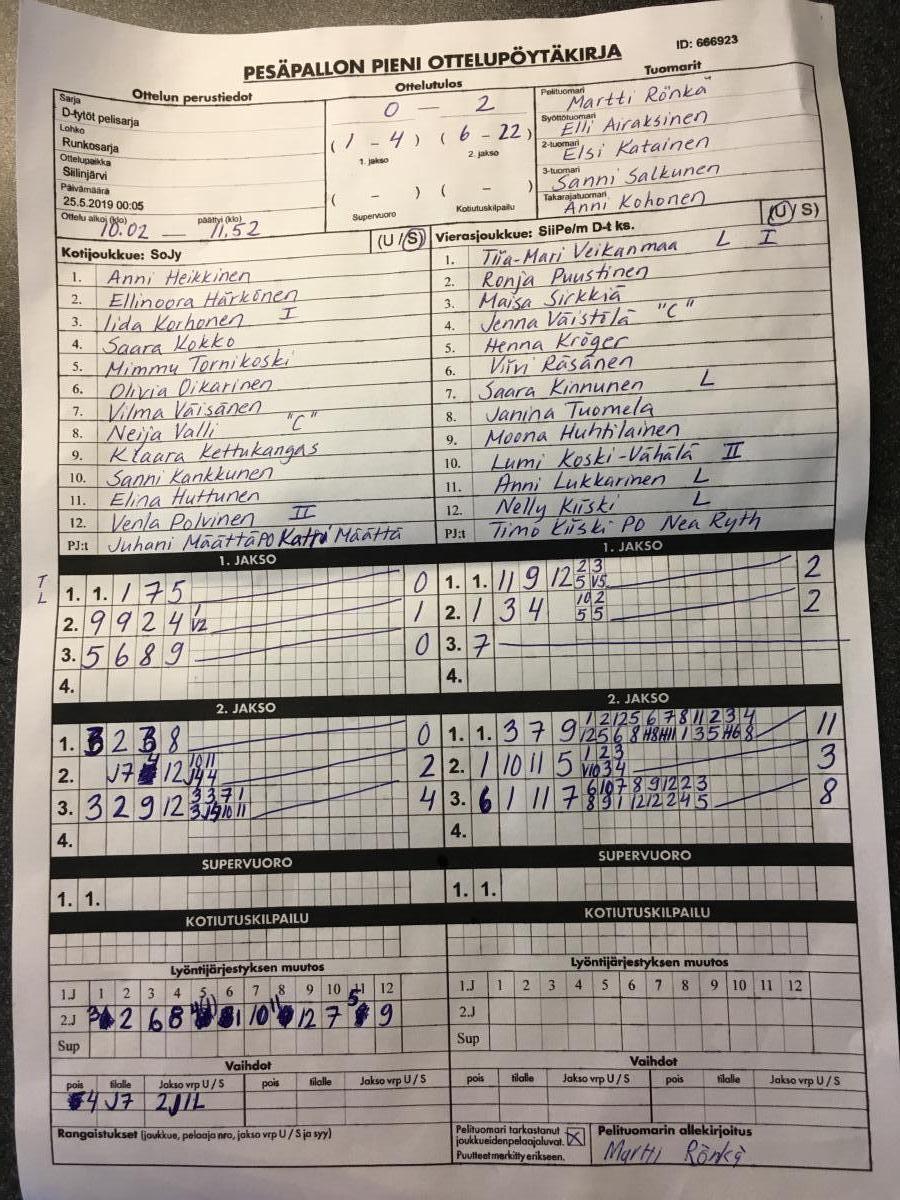 PESÄPALLON PIENI OTTELUPÖYTÄKIRJA
ID: 666923
Ottelun perustiedot
Sarja
D-tytöt pelisarja
Lohko
Runkosarja
Ottelupaikka
Siilinjärvi
Päivämäärä
25.5.2019 00:05
Ottelu alkoi (klo) päättyi (klo)
10.02 — 11.52
Ottelutulos
0 — 2
( 1 - 4 ) ( 6 - 22 )
1. jakso 2. jakso
( - ) ( - )
Supervuoro Kotiutuskilpailu
Tuomarit
Pelituomari
Martti Rönkä
Syöttötuomari
Elli Airaksinen
2-tuomari
Elsi Katainen
3-tuomari
Sanni Salkunen
Takarajatuomari
Anni Kohonen
Kotijoukkue: SoJy (U / S)
1. Anni Heikkinen
2. Ellinoora Härkönen
3. Iida Korhonen I
4. Saara Kokko
5. Mimmu Tornikoski
6. Olivia Oikarinen
7. Vilma Väisänen
8. Neija Valli "C"
9. Klaara Kettukangas
10. Sanni Kankkunen
11. Elina Huttunen
12. Venla Polvinen II
PJ:t Juhani Määttä PO Katri Määttä
Vierasjoukkue: SiiPe/m D-t ks. (U / S)
1. Tiia-Mari Veikanmaa L I
2. Ronja Puustinen
3. Maisa Sirkkiä
4. Jenna Väistölä "C"
5. Henna Kröger
6. Viivi Räsänen
7. Saara Kinnunen L
8. Janina Tuomela
9. Moona Huhtilainen
10. Lumi Koski-Vähälä II
11. Anni Lukkarinen L
12. Nelly Kiiski L
PJ:t Timo Kiiski PO Nea Ryth
1. JAKSO
T
L
1. 1. 1 7 5 0
2. 9 9 2 4 1 V2 1
3. 5 6 8 9 0
4.
1. JAKSO
1. 1. 11 9 12 2 3 5 V5 2
2. 1 3 4 10 2 5 5 2
3. 7
4.
2. JAKSO
1. 2 3 8 0
2. J7 12 10 11 J4 4 2
3. 3 2 9 12 3 3 7 1 10 11 4
4.
2. JAKSO
1. 1. 3 7 9 1 2 12 5 6 7 8 11 2 3 4 11
12 5 6 8 H8 H11 1 3 5 H6 8
2. 1 10 11 5 1 2 3 V10 3 4 3
3. 6 1 11 7 6 10 7 8 9 12 2 3 8
8 9 1 12 12 2 4 5
4.
SUPERVUORO
1. 1.
SUPERVUORO
1. 1.
KOTIUTUSKILPAILU
KOTIUTUSKILPAILU
Lyöntijärjestyksen muutos
1.J 1 2 3 4 5 6 7 8 9 10 11 12
2.J 3 2 6 8 1 10 11 12 7 5 9
Sup
Lyöntijärjestyksen muutos
1.J 1 2 3 4 5 6 7 8 9 10 11 12
2.J
Sup
Vaihdot
pois tilalle Jakso vrp U / S pois tilalle Jakso vrp U / S
4 J7 2J1L
Vaihdot
pois tilalle Jakso vrp U / S pois tilalle Jakso vrp U / S
Rangaistukset (joukkue, pelaaja nro, jakso vrp U / S ja syy)
Pelituomari tarkastanut
joukkueiden pelaajaluvat. X
Puutteet merkitty erikseen.
Pelituomarin allekirjoitus
Martti Rönkä